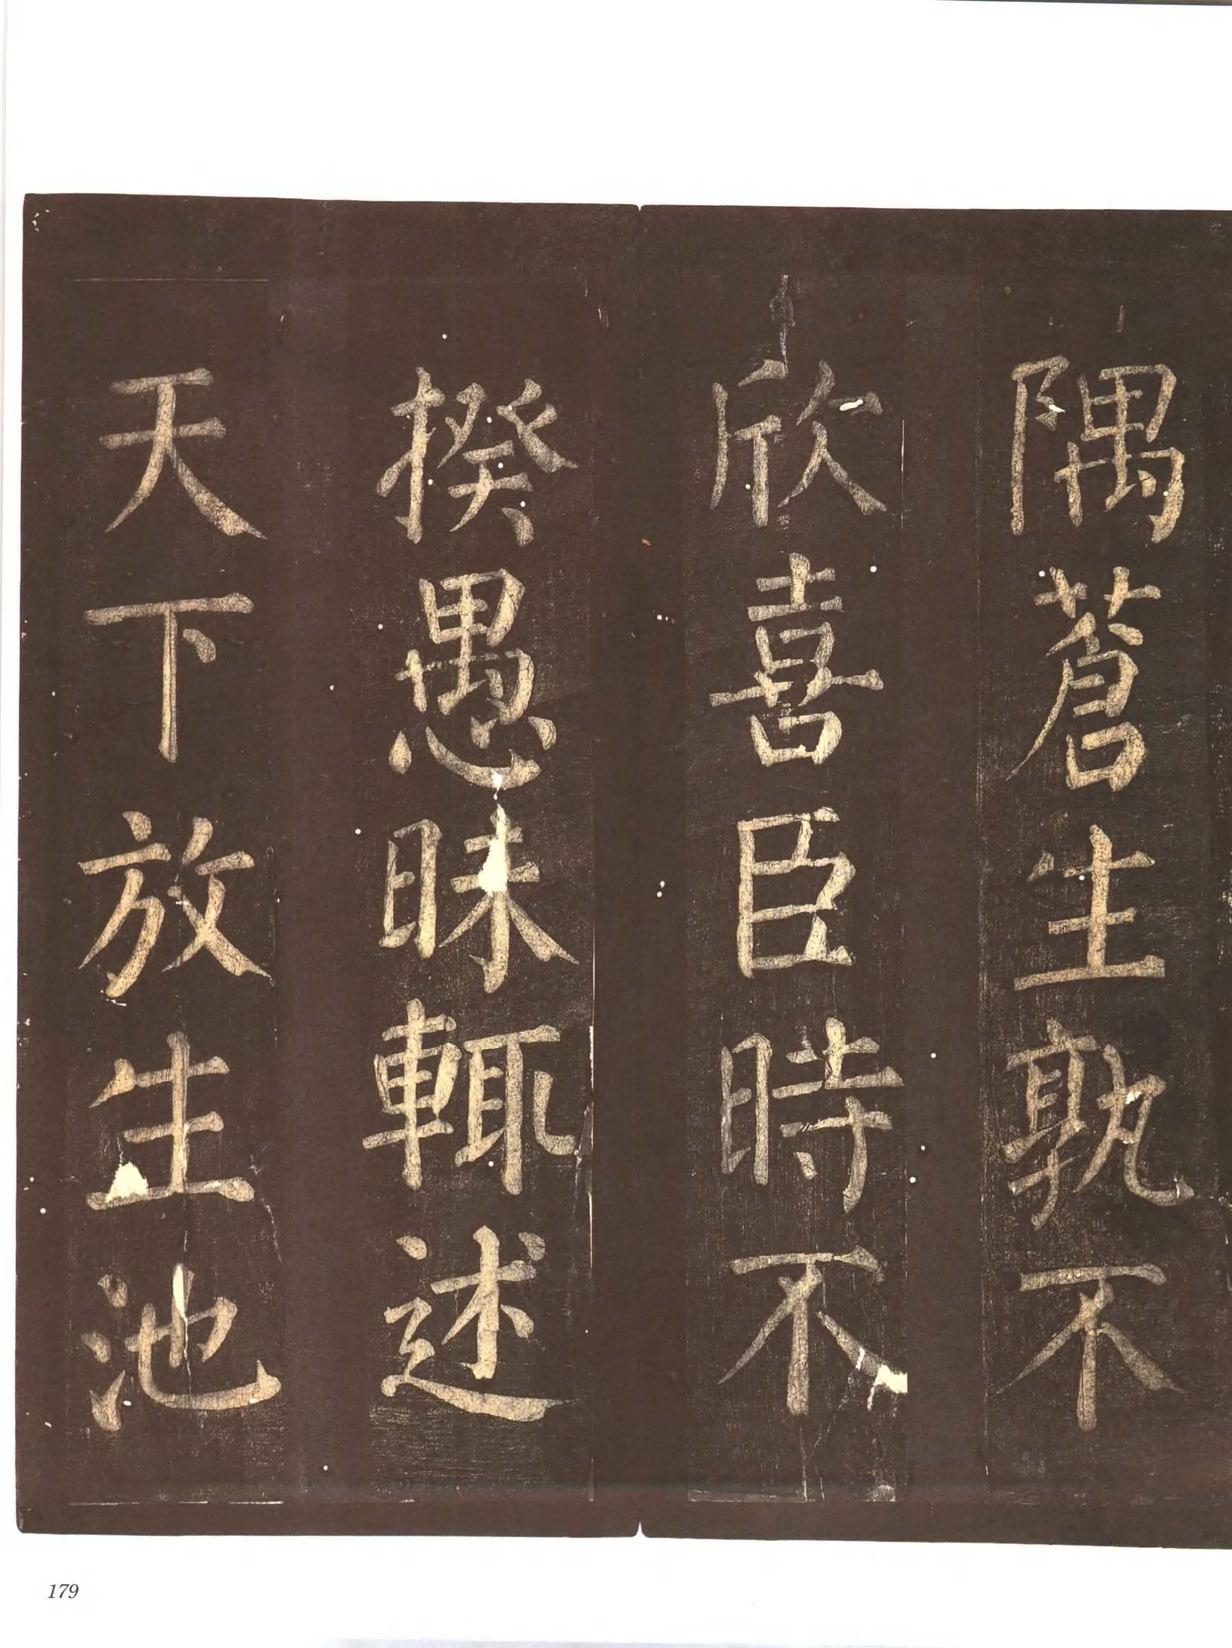 隅蒼生孰不
欣喜臣時不
揆愚昧輒述
天下放生池
179